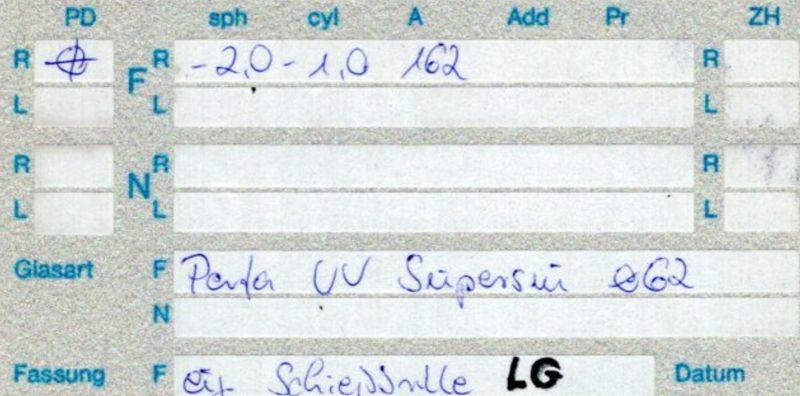 PD sph cyl A Add Pr ZH
R F R -2,0 -1,0 162 R
L L L
R N R R
L L L
Glasart F UV ø62
N
Fassung F LG Datum